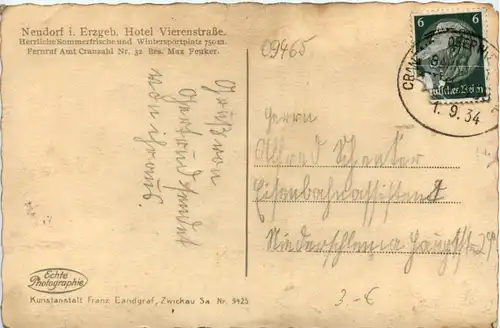 Neudorf i. Erzgeb. Hotel Vierenstraße.
Herrliche Sommerfrische und Wintersportplatz 750 m.
Fernruf Amt Cranzahl Nr. 32 Bes. Max Feuker.
09465
6 6
Deutsches Reich
CRANZAHL
1.9.34
Gruß von
Gertrud sendet
von ihraus.
Herrn
Alfred
Eisenbahnassistent
Niederschlema Hauptstr
Echte
Photographie
Kunstanstalt Franz Landgraf, Zwickau Sa Nr. 9425
3.-€